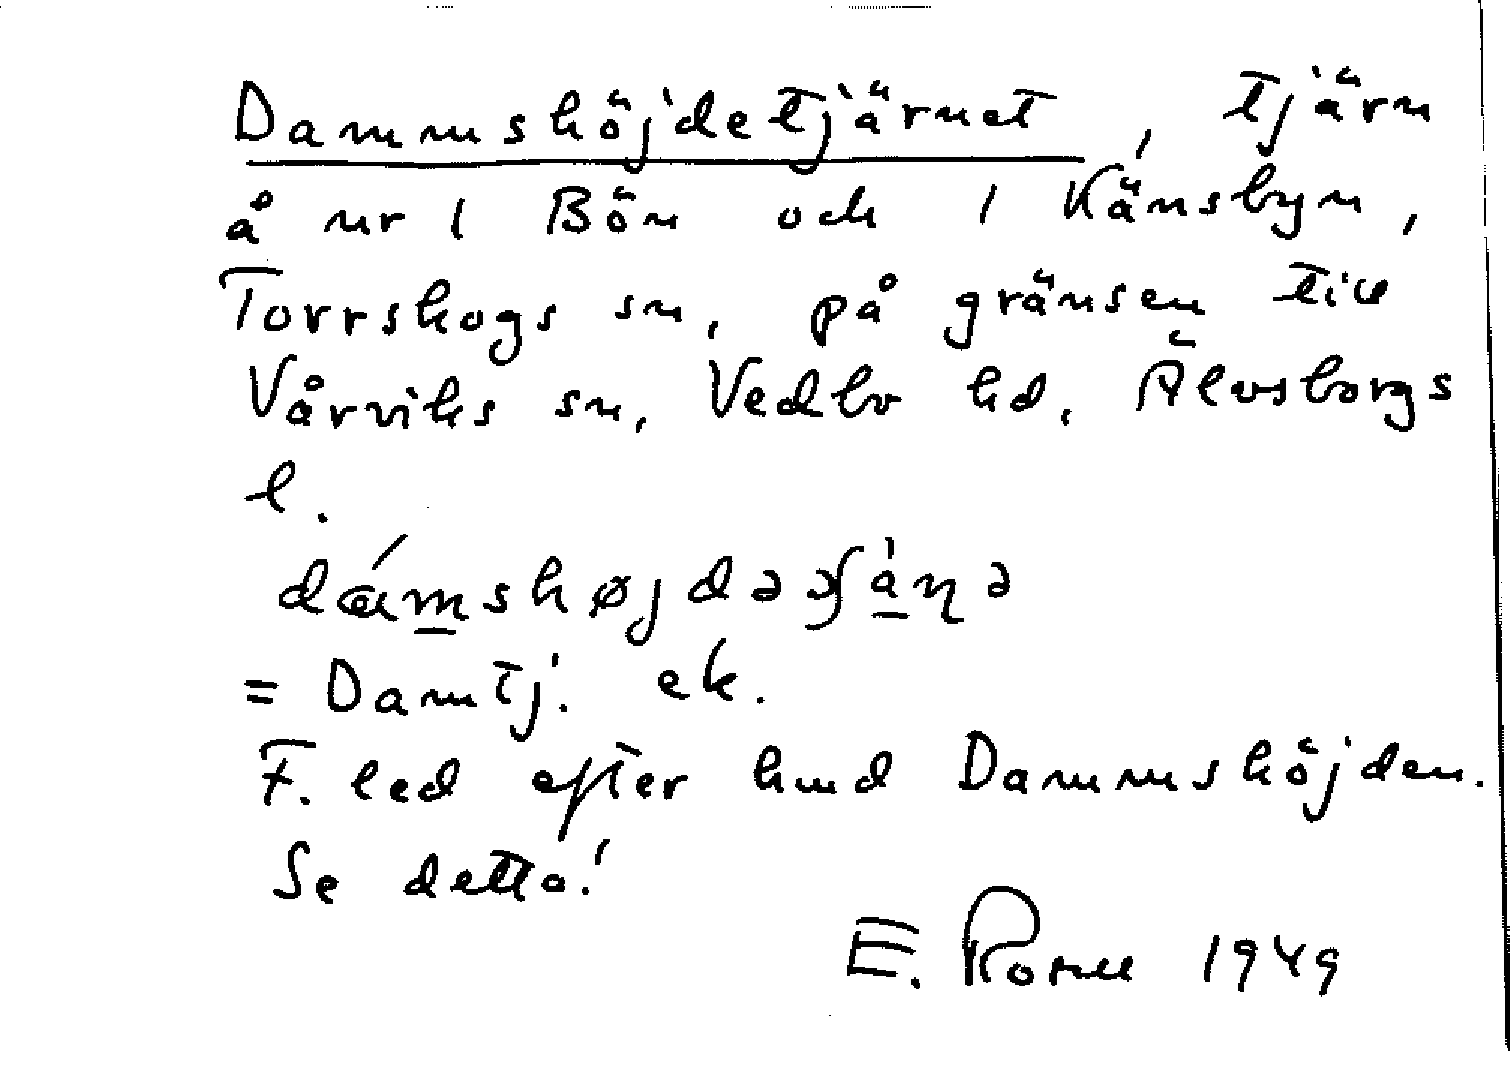 Dammshöjdetjärnet, tjärn
å nr 1 Bön och 1 Känsbyn,
Torrskogs sn, på gränsen till
Vårviks sn, Vedbo hd, Älvsborgs
l.
= Damtj. ek.
F. led efter hmd Dammshöjden.
Se detta!
E. 1949